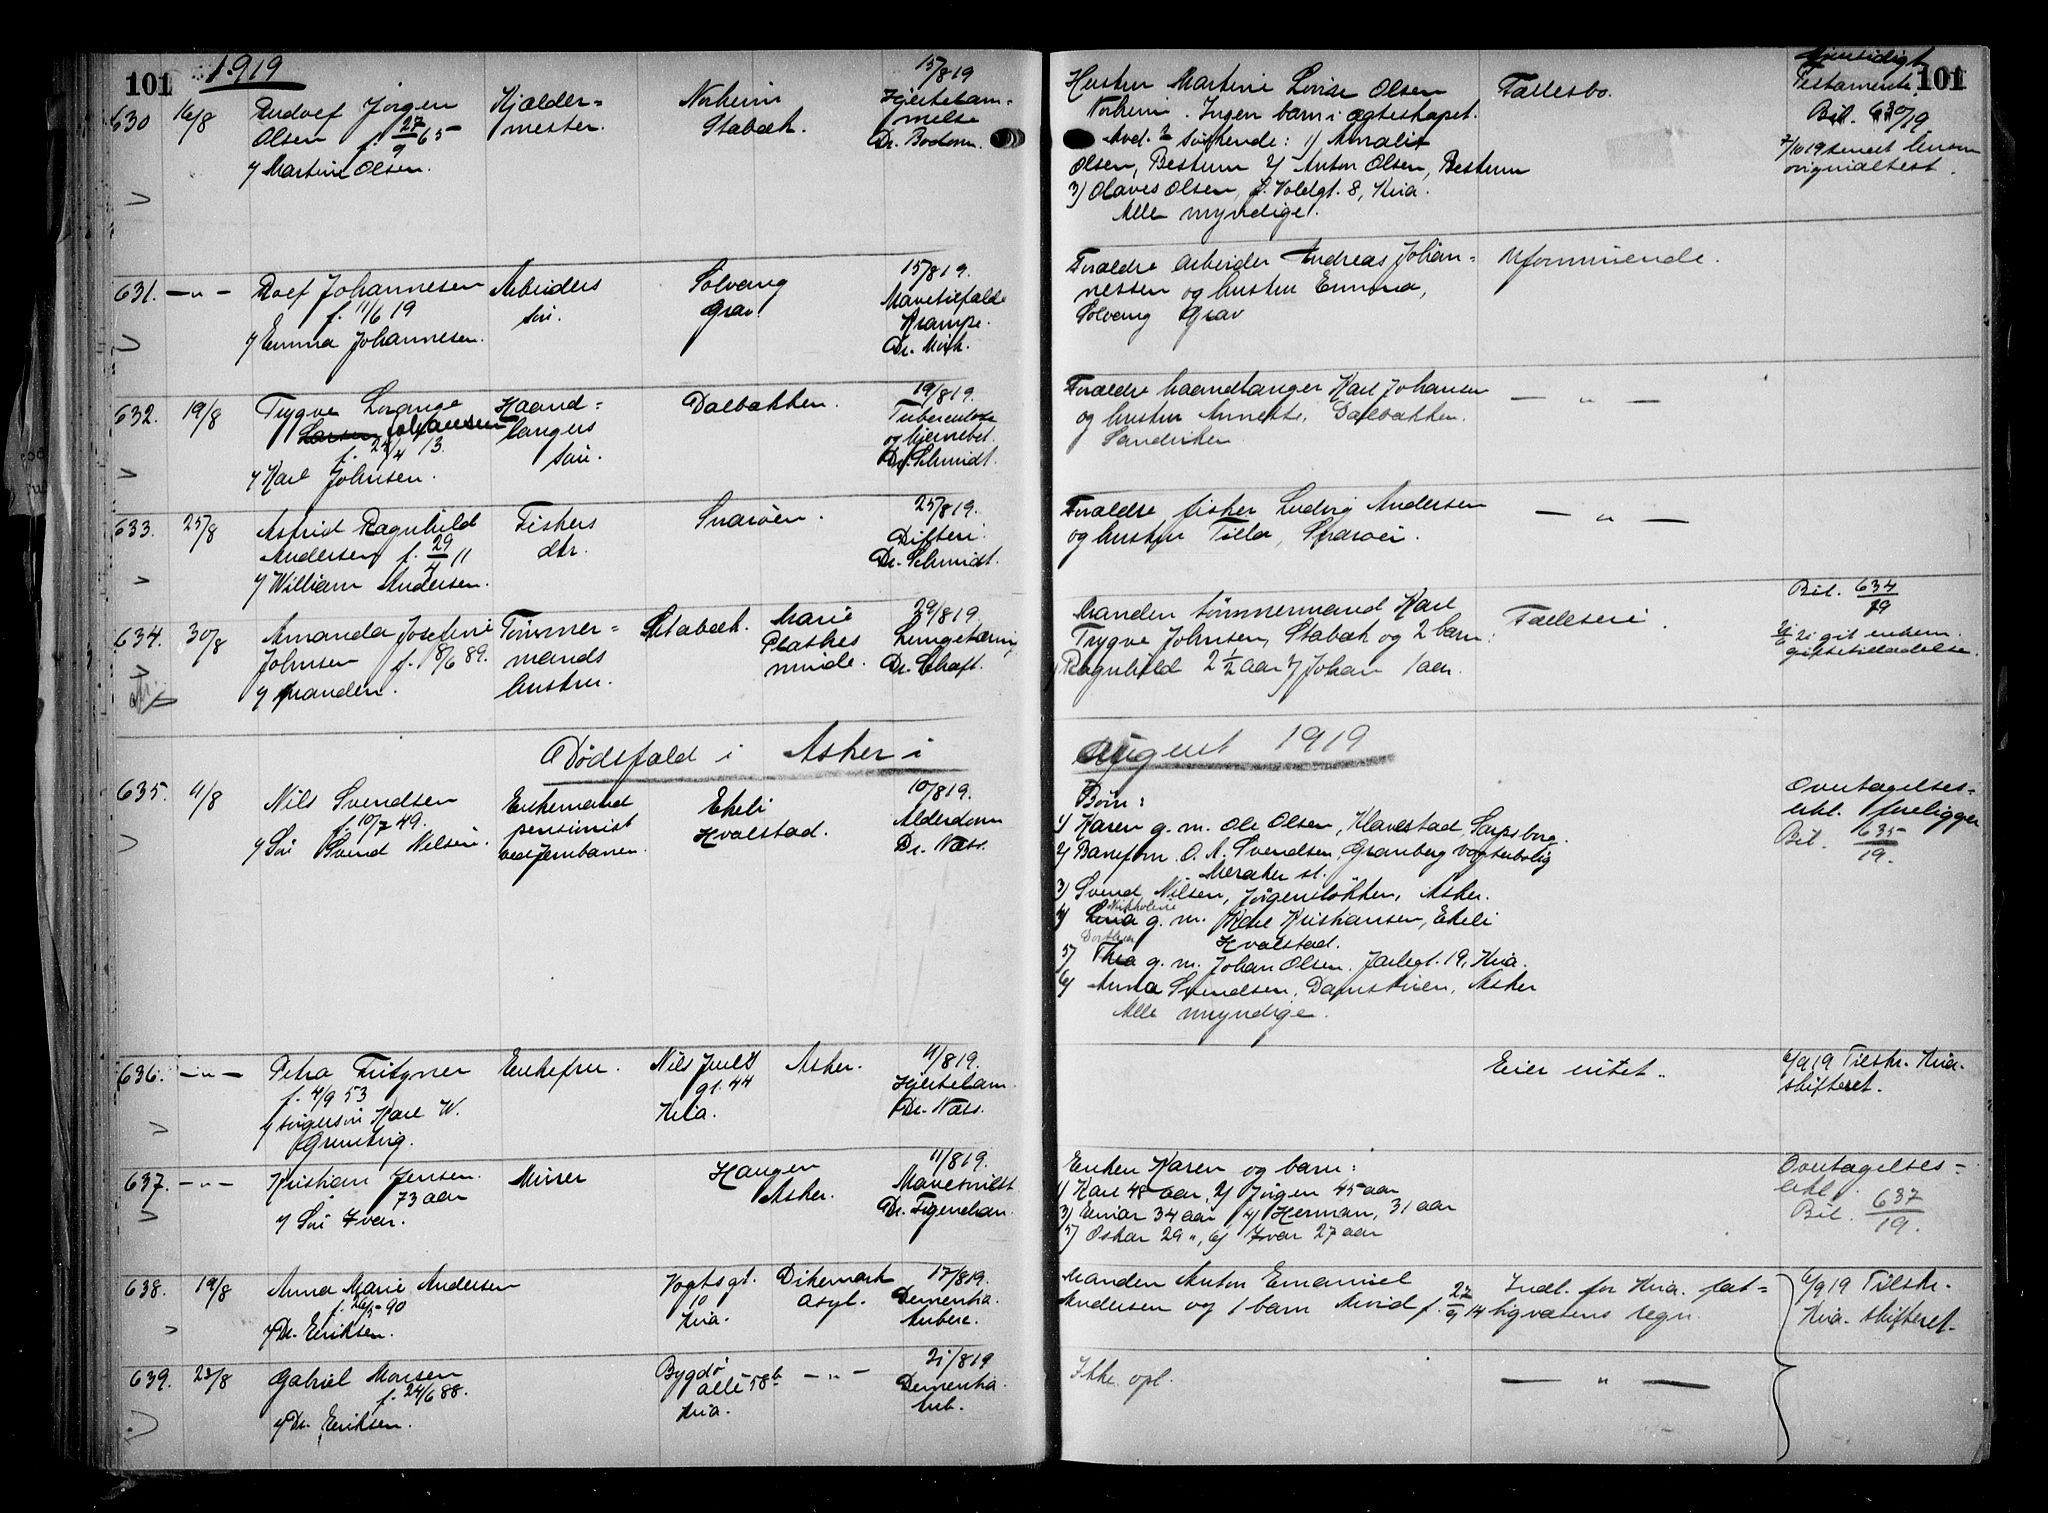 101
1919
630
16/8
Rudolf Jørgen
Olsen f. 27/9 65
v/ Martine Olsen.
Kjælder=
mester.
Norheim
Stabæk.
15/8 19
Hjertelam=
melse
Dr. Bodom.
Hustru Martine Lovise Olsen
Norheim. Ingen barn i ægteskapet.
Avd. 3 søskende: 1) Amalie
Olsen, Bestum 2) Anton Olsen, Bestum
3) Olaves Olsen, f. Voldgt. 8, Kria.
Alle myndige.
Fællesbo.
Gjensidigt
Testamente.
Bil. 630/19
7/10 19 senest
originaltest.
101
631.
— " —
Rolf Johannesen
f. 11/6 19
v/ Emma Johannesen.
Arbeiders
søn.
Solvang
Grav.
15/8 19.
Mavetilfælde
Krampe.
Dr. Mørk.
Forældre arbeider Andreas Johan=
nessen og hustru Emma,
Solvang Grav
Uformuende.
632.
19/8
Trygve Lorange
Larsen Johansen
f. 22/4 13.
v/ Karl Johnsen.
Haand=
langers
søn.
Dalbakken.
19/8 19.
Tuberculose
og hjernebet.
Dr. Schmidt.
Forældre haandlanger Karl Johansen
og hustru Annette, Dalbakken.
Sandviken
— " —
633.
25/8
Astrid Ragnhild
Andersen f. 29/4 11
v/ William Andersen.
Fiskers
dtr.
Snarøen.
25/8 19.
Difteri.
Dr. Schmidt.
Forældre fisker Ludvig Andersen
og hustru Tilla, Snarøen.
— " —
634.
30/8
Amanda Josefine
Johnsen f. 18/6 89.
v/ Manden.
Tømmer=
mands
hustru.
Stabæk.
Marie
Plathes
minde.
29/8 19.
Lungetæring
Dr. Schaft.
Manden tømmermand Karl
Trygve Johnsen, Stabæk og 2 barn:
1) Ragnhild 2 1/2 aar 2) Johan 1 aar.
Fælleseie.
Bil. 634/19
git
giftetilladelse.
Dødsfald i Asker i
August 1919
635.
11/8
Nils Svendsen
f. 10/7 49.
v/ Søn Svend Nilsen.
Enkemand
pensionist
ved Jernbanen.
Ekeli
Hvalstad.
10/8 19.
Alderdom
Dr. Næss.
Børn:
1) Karen g. m. Ole Olsen, Klavestad, Sarpsborg.
2) Banefm. O. A. Svendsen, Granberg vogterbolig
Meraker st.
3) Svend Nilsen, Jørgensløkken, Asker.
Nikoline
4) Lina g. m. Karl Kristiansen, Ekeli
Hvalstad.
Dorthea
5) Thea g. m. Johan Olsen. Jarlegt. 19, Kria.
6) Anna Svendsen, Damstuen, Asker
Alle myndige.
Overtagelses=
erkl. foreligger
Bil. 635/19.
636.
— " —
Petra Fritzner
f. 4/9 53
v/ svigersøn Karl W.
Grundtvig.
Enkefru.
Nils Juels
gt. 44
Kria.
Asker.
11/8 19.
Hjertelam.
Dr. Næss.
Eier intet.
6/9 19 Tilskr. Kria.
skifteret.
637.
— " —
Kristian Jensen.
73 aar
v/ Søn Ivar.
Murer
Haugen
Asker.
11/8 19.
Mavesvulst
Dr. Figenchau.
Enken Karen og barn:
1) Karl 48 aar, 2) Jørgen 45 aar
3) Einar 34 aar 4) Herman, 31 aar
5) Oskar 29 ", 6) Ivar 27 aar
Overtagelses=
erkl.
Bil. 637/19.
638.
19/8
Anna Marie Andersen
f. 26/5 90
v/ Dr. Eriksen.
Vogtsgt.
10
Kria.
Dikemark
asyl.
17/8 19.
Dementia.
Tuberc.
Manden Anton Emanuel
Andersen og 1 barn Arvid f. 22/9 14
Indl. for Kria. fat=
tigvæsens regn.
6/9 19 Tilskr.
Kria. skifteret.
639.
23/8
Gabriel Monsen
f. 24/6 88.
v/ Dr. Eriksen.
Bygdø
alle 58b
Kria.
— " —
21/8 19
Dementia.
tub.
Ikke opl.
— " —